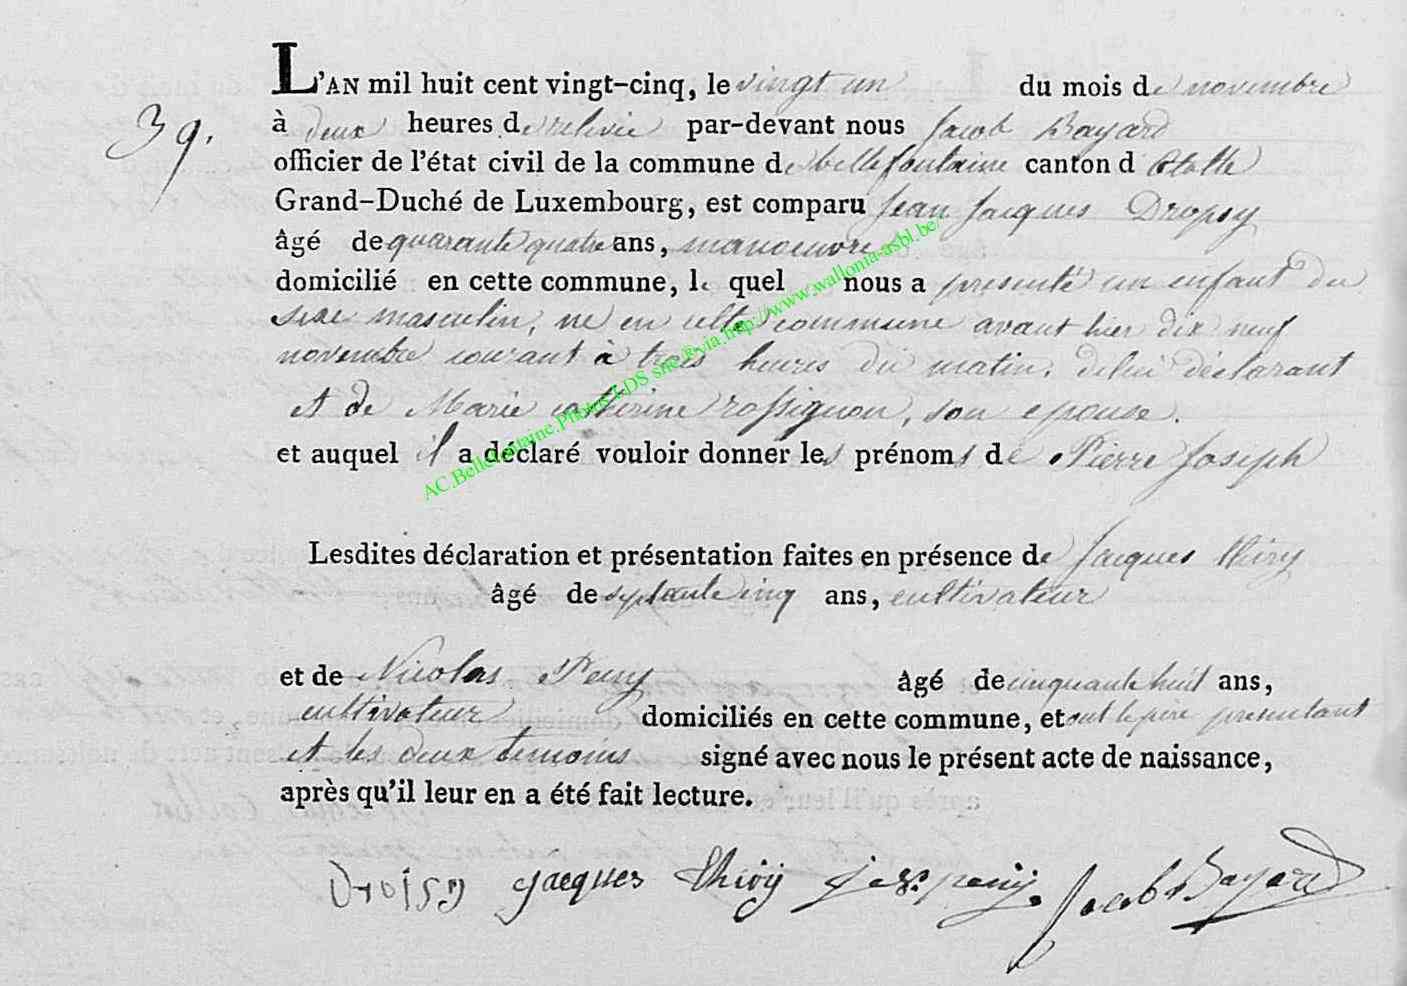 L'AN mil huit cent vingt-cinq, le vingt un du mois de novembre
39. à deux heures de relevée par-devant nous Jacob Bayard
officier de l'état civil de la commune de bellefontaine canton d'Etalle
Grand-Duché de Luxembourg, est comparu Jean Jacques Dropsy
âgé de quarante quatre ans, manoeuvre
domicilié en cette commune, le quel nous a presenté un enfant du
sexe masculin, né en cette commune avant hier dix neuf
novembre courant à trois heures du matin, de lui déclarant
et de Marie catherine rossignon, son epouse.
et auquel il a déclaré vouloir donner les prénoms de Pierre Joseph
Lesdites déclaration et présentation faites en présence de Jacques thiry
âgé de septante cinq ans, cultivateur
et de Nicolas Peuy âgé de cinquante huit ans,
cultivateur domiciliés en cette commune, et ont le père presentant
et les deux temoins signé avec nous le présent acte de naissance,
après qu'il leur en a été fait lecture.
Dropsy jacques thiry Jacob Bayard
AC.Bellefontaine.Photos LDS snc © via http://www.wallonia-asbl.be/